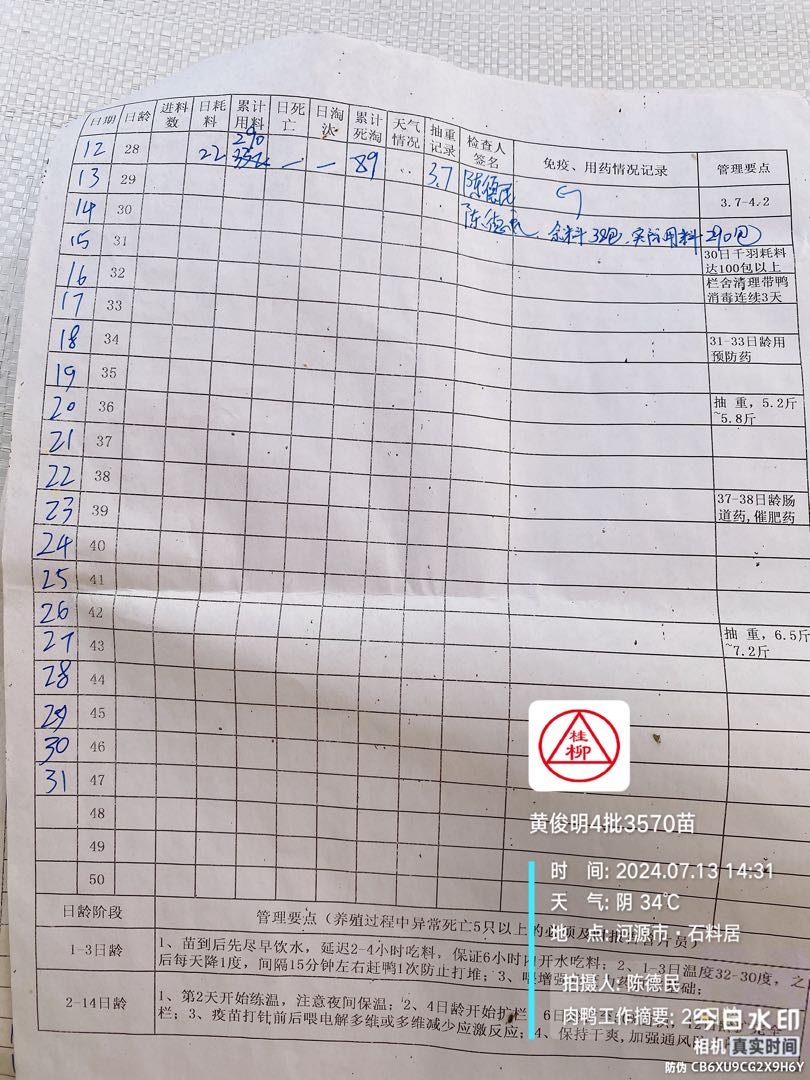 日期 日龄 进料数 日耗料 累计用料 日死亡 日淘汰 累计死淘 天气情况 抽重记录 检查人签名 免疫、用药情况记录 管理要点
12 28 22 290 — — 89 3.7 陈德民
13 29 3.7-4.2
14 30 陈德民 余料32包，实际用料290包
15 31 30日千羽耗料达100包以上
16 32 栏舍清理带鸭消毒连续3天
17 33
18 34 31-33日龄用预防药
19 35
20 36 抽 重，5.2斤~5.8斤
21 37
22 38
23 39 37-38日龄肠道药,催肥药
24 40
25 41
26 42
27 43 抽 重，6.5斤~7.2斤
28 44
29 45
30 46
31 47
48
49
50
日龄阶段 管理要点（养殖过程中异常死亡5只以上的必须及
1-3日龄 1、苗到后先尽早饮水，延迟2-4小时吃料，保证6小时内开水吃料；2、1-3日温度32-30度，之
后每天降1度，间隔15分钟左右赶鸭1次防止打堆；3、
2-14日龄 1、第2天开始练温，注意夜间保温；2、4日龄开始扩栏
栏；3、疫苗打针前后喂电解多维或多维减少应激反应；4、保持干爽,加强通风
桂柳
黄俊明4批3570苗
时 间: 2024.07.13 14:31
天 气: 阴 34℃
地 点: 河源市·石料居
拍摄人: 陈德民
肉鸭工作摘要: 29
今日水印
相机 真实时间
防伪 CB6XU9CG2X9H6Y